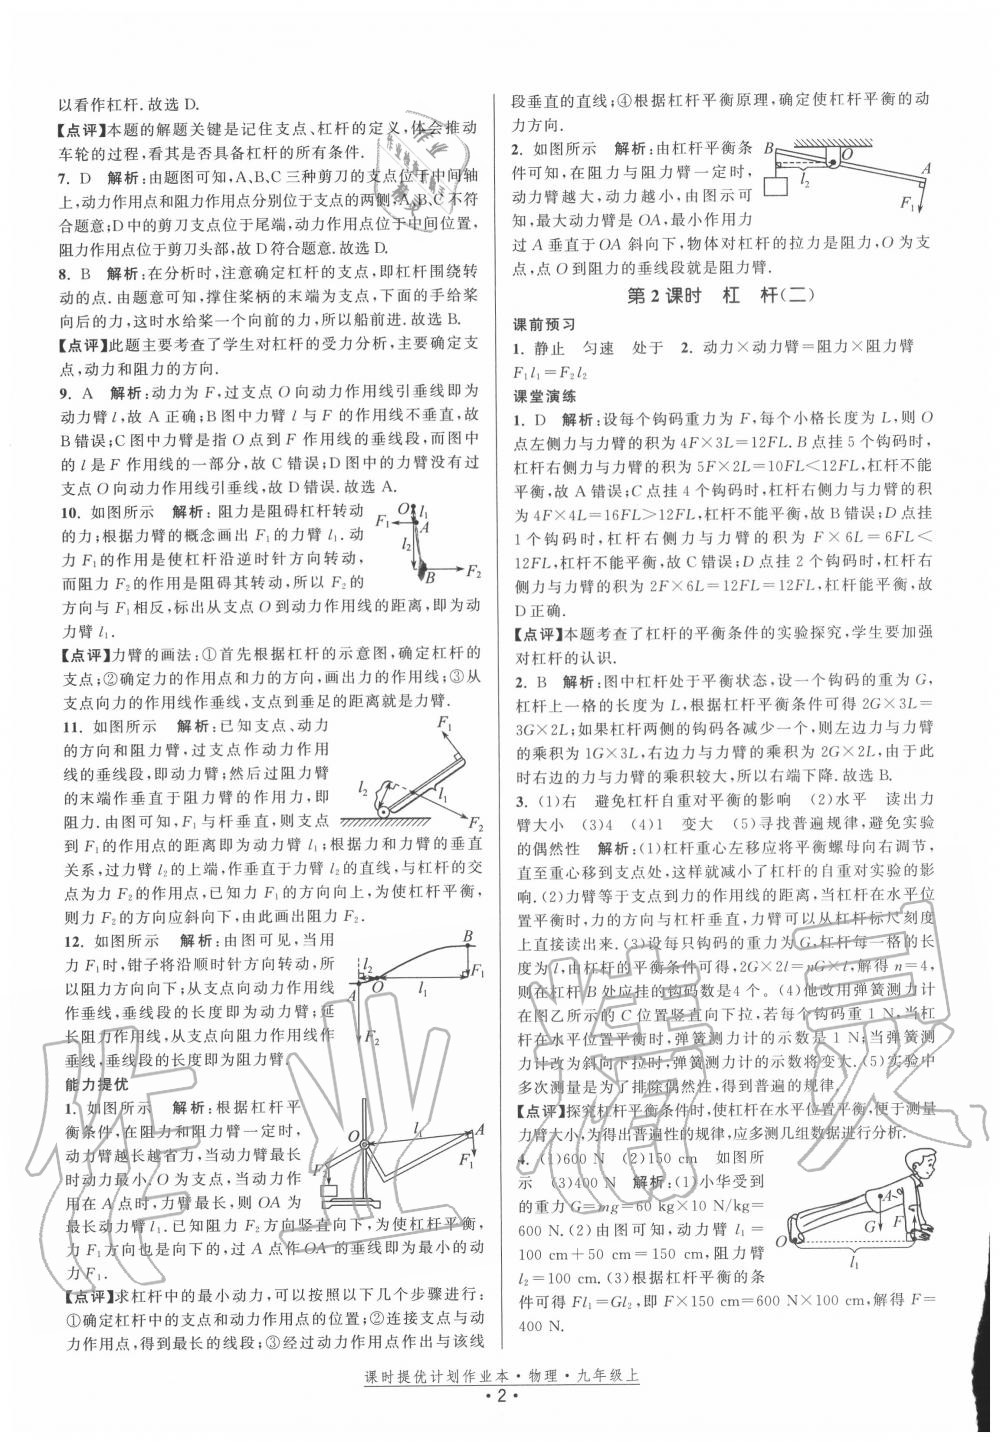 以看作杠杆.故选 D.
【点评】本题的解题关键是记住支点、杠杆的定义,体会推动
车轮的过程,看其是否具备杠杆的所有条件.
7. D 解析:由题图可知,A、B、C 三种剪刀的支点位于中间轴
上,动力作用点和阻力作用点分别位于支点的两侧,A、B、C 不符
合题意;D 中的剪刀支点位于尾端,动力作用点位于中间位置,
阻力作用点位于剪刀头部,故 D 符合题意.故选 D.
8. B 解析:在分析时,注意确定杠杆的支点,即杠杆围绕转
动的点.由题意可知,撑住桨柄的末端为支点,下面的手给桨
向后的力,这时水给桨一个向前的力,所以船前进.故选 B.
【点评】此题主要考查了学生对杠杆的受力分析,主要确定支
点,动力和阻力的方向.
9. A 解析:动力为 F,过支点 O 向动力作用线引垂线即为
动力臂 l,故 A 正确;B 图中力臂 l 与 F 的作用线不垂直,故
B 错误;C 图中力臂是指 O 点到 F 作用线的垂线段,而图中
的 l 是 F 作用线的一部分,故 C 错误;D 图中的力臂没有过
支点 O 向动力作用线引垂线,故 D 错误.故选 A.
10. 如图所示 解析:阻力是阻碍杠杆转动
的力;根据力臂的概念画出 F1 的力臂 l1.动
力 F1 的作用是使杠杆沿逆时针方向转动,
而阻力 F2 的作用是阻碍其转动,所以 F2 的
方向与 F1 相反,标出从支点 O 到动力作用线的距离,即为动
力臂 l1.
O l1 F1 A l2 B F2
【点评】力臂的画法:①首先根据杠杆的示意图,确定杠杆的
支点;②确定力的作用点和力的方向,画出力的作用线;③从
支点向力的作用线作垂线,支点到垂足的距离就是力臂.
11. 如图所示 解析:已知支点、动力
的方向和阻力臂,过支点作动力作用
线的垂线段,即动力臂;然后过阻力臂
的末端作垂直于阻力臂的作用力,即
阻力.由图可知,F1 与杆垂直,则支点
到 F1 作用点的距离即为动力臂 l1;根据力和力臂的垂直
关系,过力臂 l2 的上端,作垂直于力臂 l2 的直线,与杠杆的交
点为力 F2 的作用点,已知力 F1 的方向向上,为使杠杆平衡,
则力 F2 的方向应斜向下,由此画出阻力 F2.
F1 l2 l1 F2
12. 如图所示 解析:由图可见,当用
力 F1 时,钳子将沿顺时针方向转动,所
以阻力方向向下;从支点向动力作用线
作垂线,垂线段的长度即为动力臂;延
长阻力作用线,从支点向阻力作用线作
垂线,垂线段的长度即为阻力臂.
B l2 F1 A O l1 F2
能力提优
1. 如图所示 解析:根据杠杆平
衡条件,在阻力和阻力臂一定时,
动力臂越长越省力,当动力臂最长
时动力最小.O 为支点,当动力作
用在 A 点时,力臂最长,则 OA 为
最长动力臂 l1.已知阻力 F2 方向竖直向下,为使杠杆平衡,
力 F1 方向也是向下的,过 A 点作 OA 的垂线即为最小的动
力 F1.
O l1 A F1 F2
【点评】求杠杆中的最小动力,可以按照以下几个步骤进行:
①确定杠杆中的支点和动力作用点的位置;②连接支点与动
力作用点,得到最长的线段;③经过动力作用点作出与该线
段垂直的直线;④根据杠杆平衡原理,确定使杠杆平衡的动
力方向.
2. 如图所示 解析:由杠杆平衡条
件可知,在阻力与阻力臂一定时,
动力臂越大,动力越小,由图示可
知,最大动力臂是 OA,最小作用力
过 A 垂直于 OA 斜向下,物体对杠杆的拉力是阻力,O 为支
点,点 O 到阻力的垂线段就是阻力臂.
B O l2 A F1
第 2 课时 杠 杆(二)
课前预习
1. 静止 匀速 处于 2. 动力×动力臂=阻力×阻力臂
F1l1=F2l2
课堂演练
1. D 解析:设每个钩码重力为 F,每个小格长度为 L,则 O
点左侧力与力臂的积为 4F×3L=12FL.B 点挂 5 个钩码时,
杠杆右侧力与力臂的积为 5F×2L=10FL<12FL,杠杆不能平
衡,故 A 错误;C 点挂 4 个钩码时,杠杆右侧力与力臂的积
为 4F×4L=16FL>12FL,杠杆不能平衡,故 B 错误;D 点挂
1 个钩码时,杠杆右侧力与力臂的积为 F×6L=6FL<
12FL,杠杆不能平衡,故 C 错误;D 点挂 2 个钩码时,杠杆右
侧力与力臂的积为 2F×6L=12FL,杠杆能平衡,故
D 正确.
【点评】本题考查了杠杆的平衡条件的实验探究,学生要加强
对杠杆的认识.
2. B 解析:图中杠杆处于平衡状态,设一个钩码的重为 G,
杠杆上一格的长度为 L,根据杠杆平衡条件可得 2G×3L=
3G×2L;如果杠杆两侧的钩码各减少一个,则左边力与力臂
的乘积为 1G×3L,右边力与力臂的乘积为 2G×2L,由于此
时右边的力与力臂的乘积较大,所以右端下降.故选 B.
3. (1)右 避免杠杆自重对平衡的影响 (2)水平 读出力
臂大小 (3)4 (4)1 变大 (5)寻找普遍规律,避免实验
的偶然性 解析:(1)杠杆重心左移应将平衡螺母向右调节,
直至重心移到支点处,这样就减小了杠杆的自重对实验的影
响.(2)力臂等于支点到力的作用线的距离,当杠杆在水平位
置平衡时,力的方向与杠杆垂直,力臂可以从杠杆标尺刻度
上直接读出来.(3)设每只钩码的重力为 G,杠杆每一格的长
度为 l,由杠杆的平衡条件可得,2G×2l=nG×l,解得 n=4,
则在杠杆 B 处应挂的钩码数是4 个. (4)他改用弹簧测力计
在图乙所示的 C 位置竖直向下拉,若每个钩码重 1 N,当杠
杆在水平位置平衡时,弹簧测力计的示数是 1 N;当弹簧测
力计改为斜向下拉时,弹簧测力计的示数将变大.(5)实验中
多次测量是为了排除偶然性,得到普遍的规律.
【点评】探究杠杆平衡条件时,使杠杆在水平位置平衡,便于测量
力臂大小,为得出普遍性的规律,应多测几组数据进行分析.
4. (1)600 N (2)150 cm 如图所
示 (3)400 N 解析:(1)小华受到
的重力 G=mg=60 kg×10 N/kg=
600 N.(2)由图可知,动力臂 l1=
100 cm+50 cm=150 cm,阻力臂
l2=100 cm.(3)根据杠杆平衡的条
件可得 Fl1=Gl2,即 F×150 cm=600 N×100 cm,解得 F=
400 N.
O A G F l1
课时提优计划作业本·物理·九年级上
·2·
作业精灵